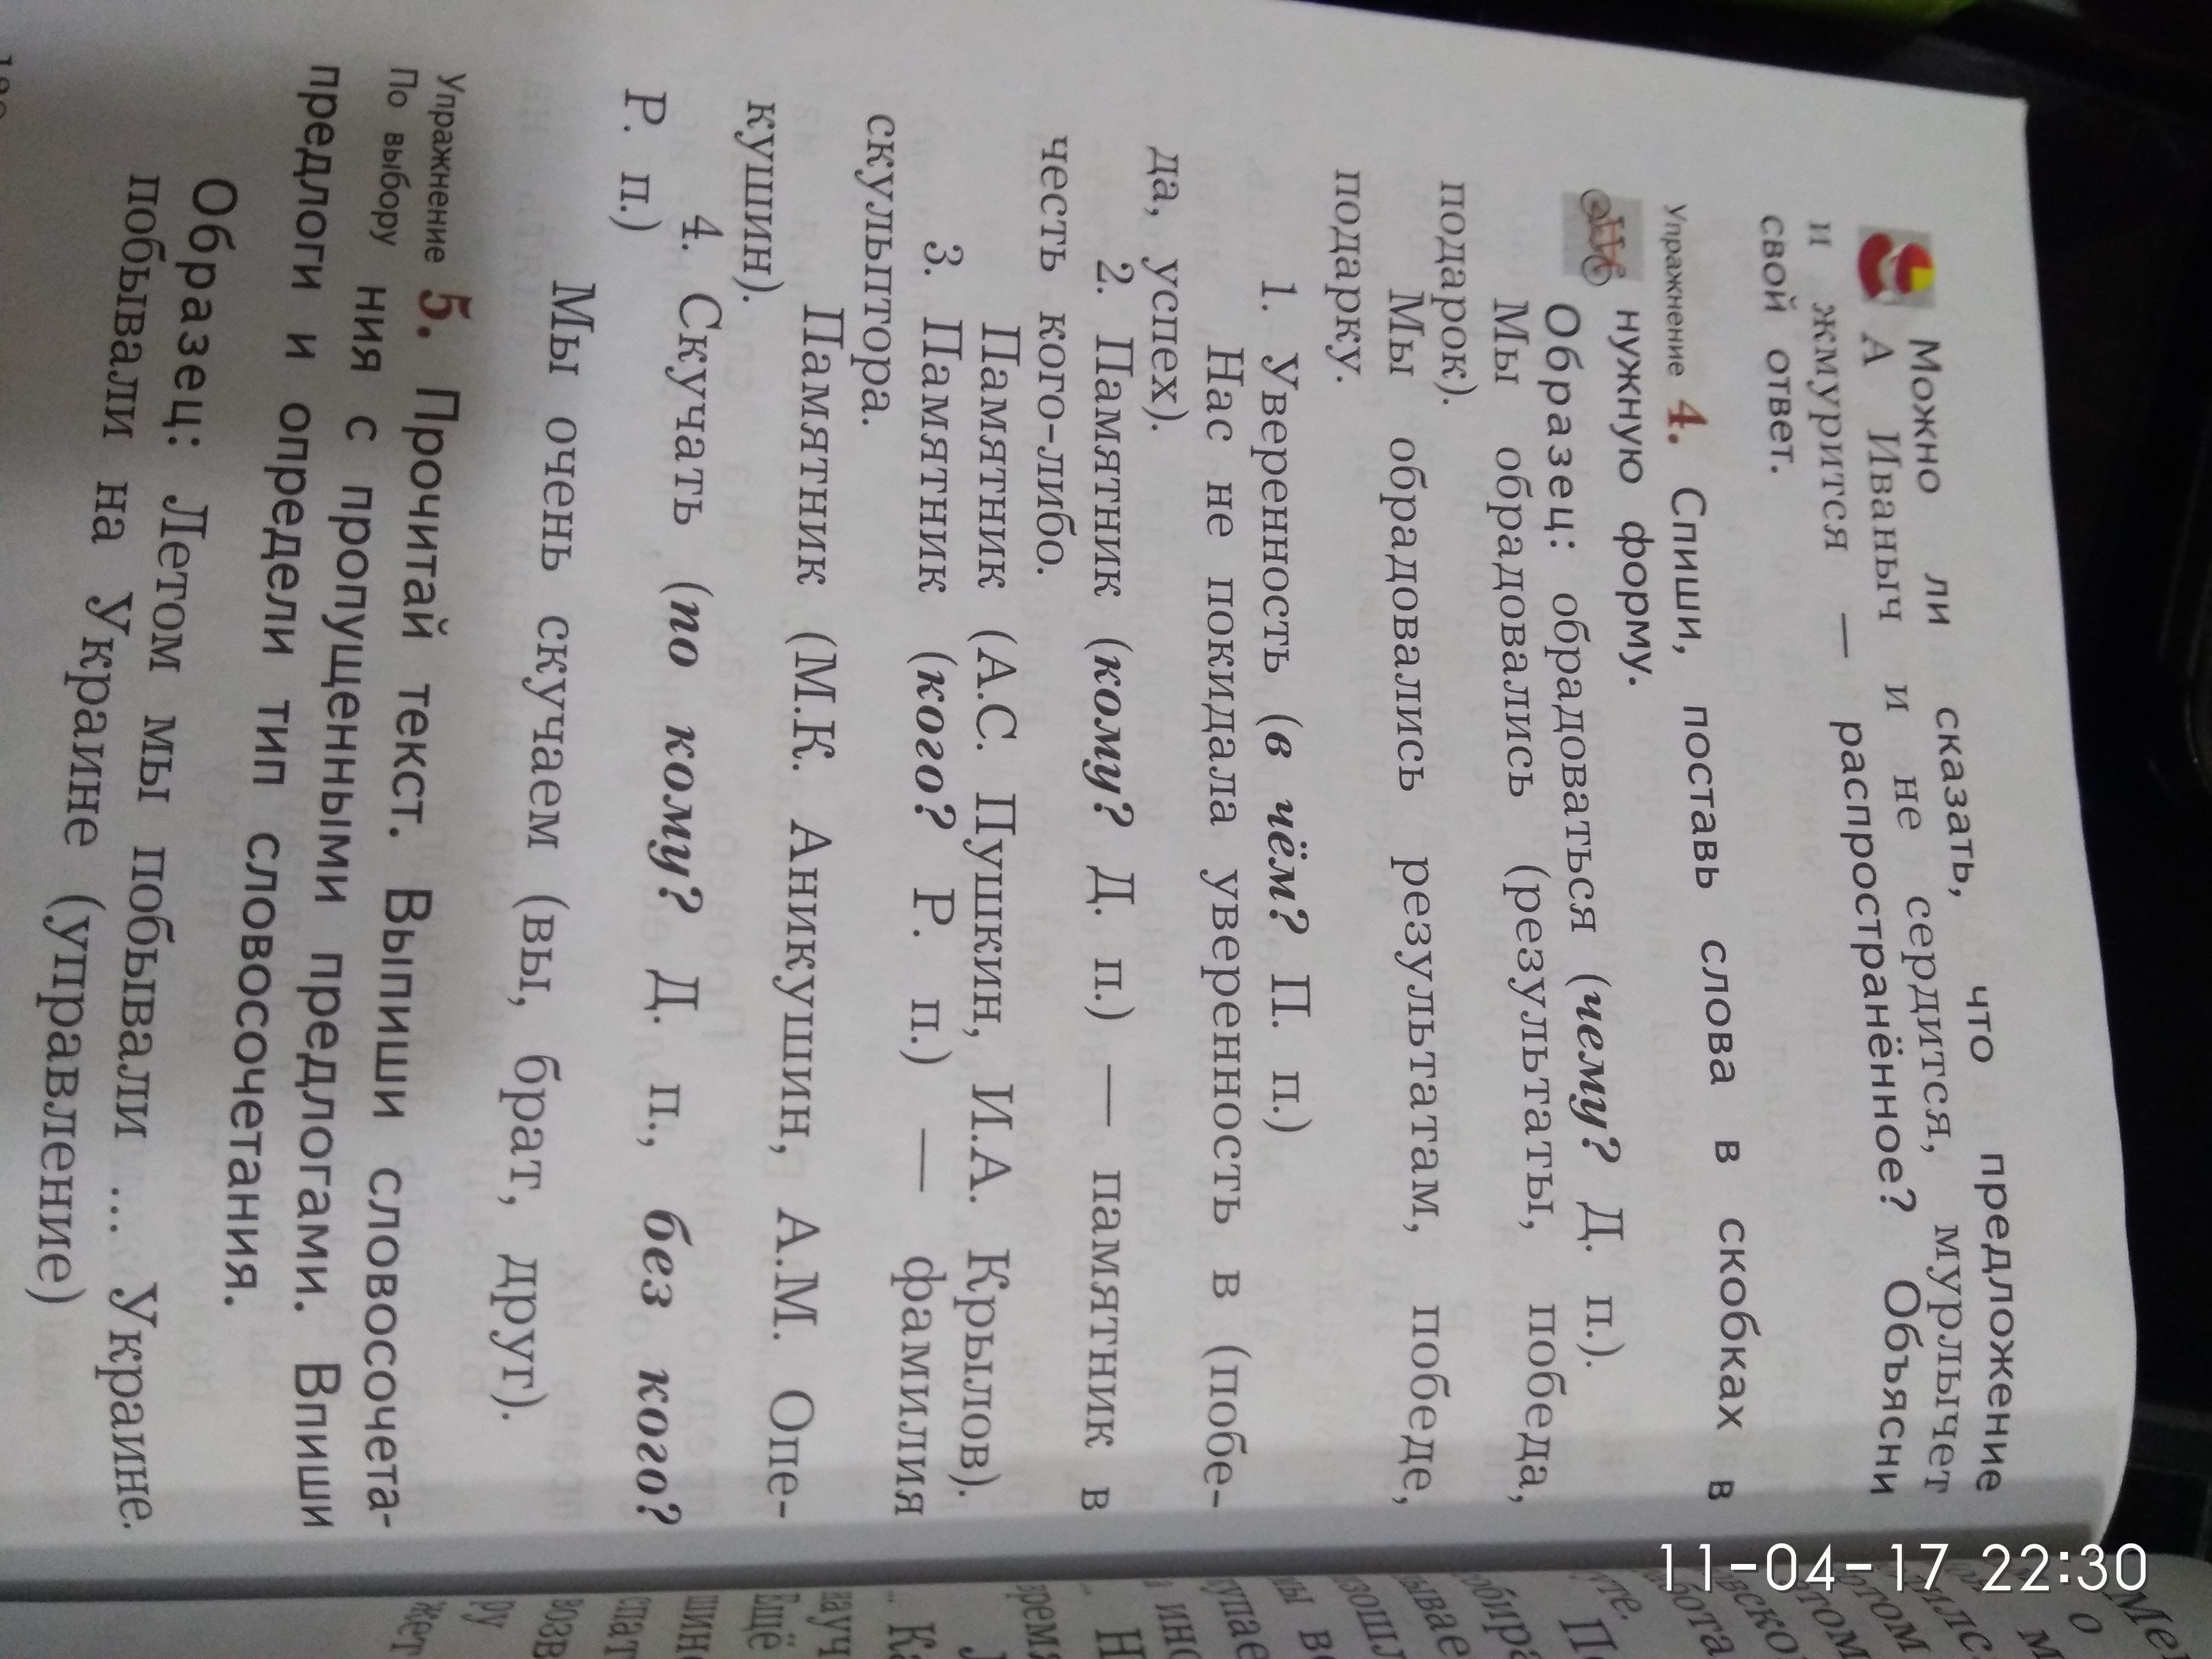 Можно ли сказать, что предложение
А Иваныч и не сердится, мурлычет
и жмурится — распространённое? Объясни
свой ответ.
Упражнение 4. Спиши, поставь слова в скобках в
нужную форму.
Образец: обрадоваться (чему? Д. п.).
Мы обрадовались (результаты, победа,
подарок).
Мы обрадовались результатам, победе,
подарку.
1. Уверенность (в чём? П. п.)
Нас не покидала уверенность в (побе-
да, успех).
2. Памятник (кому? Д. п.) — памятник в
честь кого-либо.
Памятник (А.С. Пушкин, И.А. Крылов).
3. Памятник (кого? Р. п.) — фамилия
скульптора.
Памятник (М.К. Аникушин, А.М. Опе-
кушин).
4. Скучать (по кому? Д. п., без кого?
Р. п.)
Мы очень скучаем (вы, брат, друг).
Упражнение 5. Прочитай текст. Выпиши словосочета-
По выбору ния с пропущенными предлогами. Впиши
предлоги и определи тип словосочетания.
Образец: Летом мы побывали ... Украине.
побывали на Украине (управление)
11-04-17 22:30